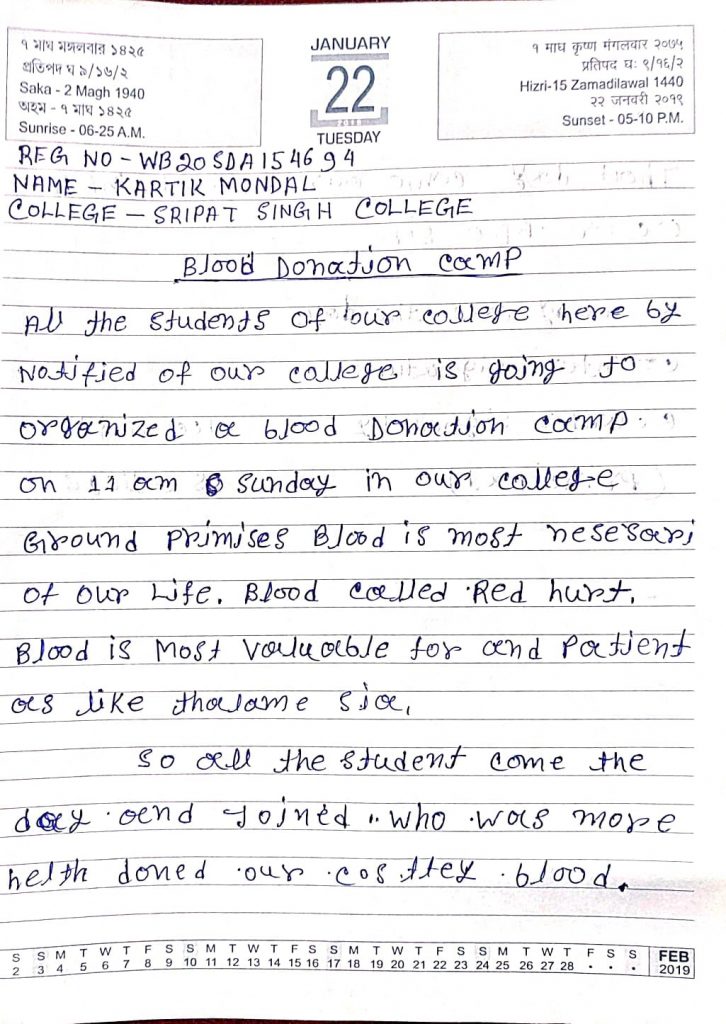 १ माघ मঙ্গলবার ১৪২৫
প্রতিপদ ঘ ৯/১৬/২
Saka - 2 Magh 1940
অহম - ৭ মাঘ ১৪২৫
Sunrise - 06-25 A.M.
JANUARY
22
2019
TUESDAY
१ माघ कृष्ण मंगलवार २०७५
प्रतिपद घः ९/१६/२
Hizri-15 Zamadilawal 1440
२२ जनवरी २०१९
Sunset - 05-10 P.M.
REG NO - WB20SDA154694
NAME - KARTIK MONDAL
COLLEGE - SRIPAT SINGH COLLEGE
Blood Donation camp
All the students of our college here by
Notified of our college is going to
organized a blood Donation camp
on 11 am Sunday in our college.
Ground primises Blood is most nesesari
of our Life. Blood called Red hurt.
Blood is most valuable for and patient
as like thalame sia.
so all the student come the
day and joined who was more
helth doned our costtey blood.
S S M T W T F S S M T W T F S S M T W T F S S M T W T F S S
2 3 4 5 6 7 8 9 10 11 12 13 14 15 16 17 18 19 20 21 22 23 24 25 26 27 28 • • •
FEB
2019